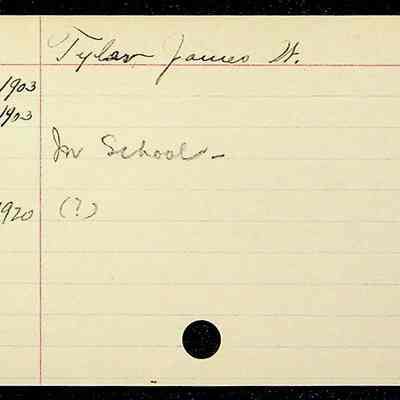 Tylor James W.
1903
1903
In School -
1920 (?)